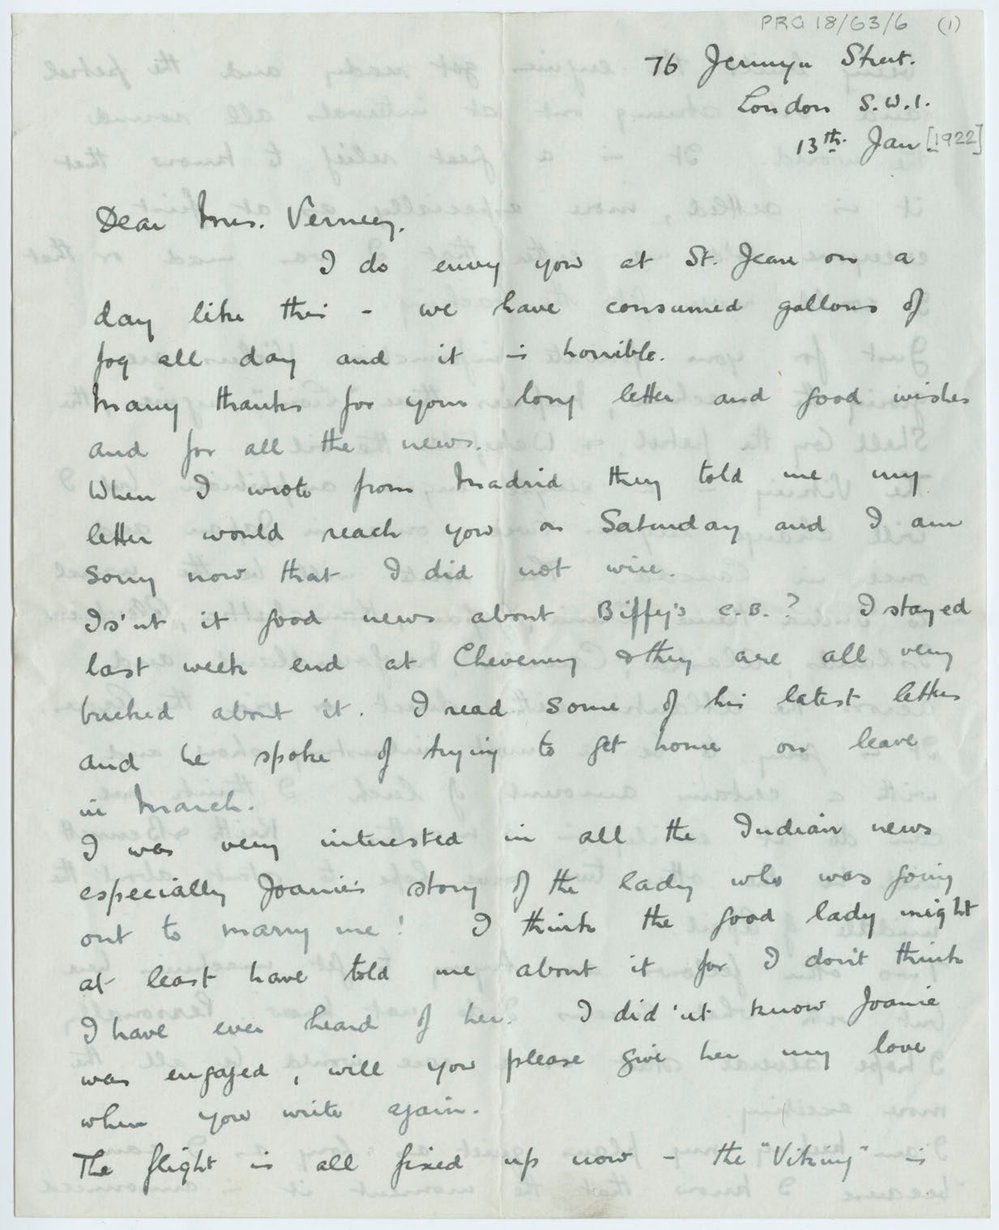 PRG 18/63/6 (1)
76 Jermyn Street.
London S.W.1.
13th. Jan [1922]
Dear Mrs. Verney,
I do envy you at St. Jean on a
day like this - we have consumed gallons of
fog all day and it is horrible.
Many thanks for your long letter and good wishes
and for all the news.
When I wrote from Madrid they told me my
letter would reach you on Saturday and I am
sorry now that I did not wire.
Is'nt it good news about Biffy's C.B.? I stayed
last week end at Cheveney & they are all very
bucked about it. I read some of his latest letters
and he spoke of trying to get home on leave
in March.
I was very interested in all the Indian news
especially Joanie's story of the lady who was going
out to marry me! I think the good lady might
at least have told me about it for I don't think
I have ever heard of her. I did'nt know Joanie
was engaged, will you please give her my love
when you write again.
The flight is all fixed up now - the "Viking" is